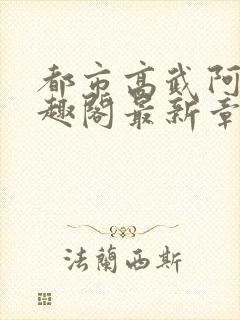 都市高武阿
趣閣最新章
法蘭西斯